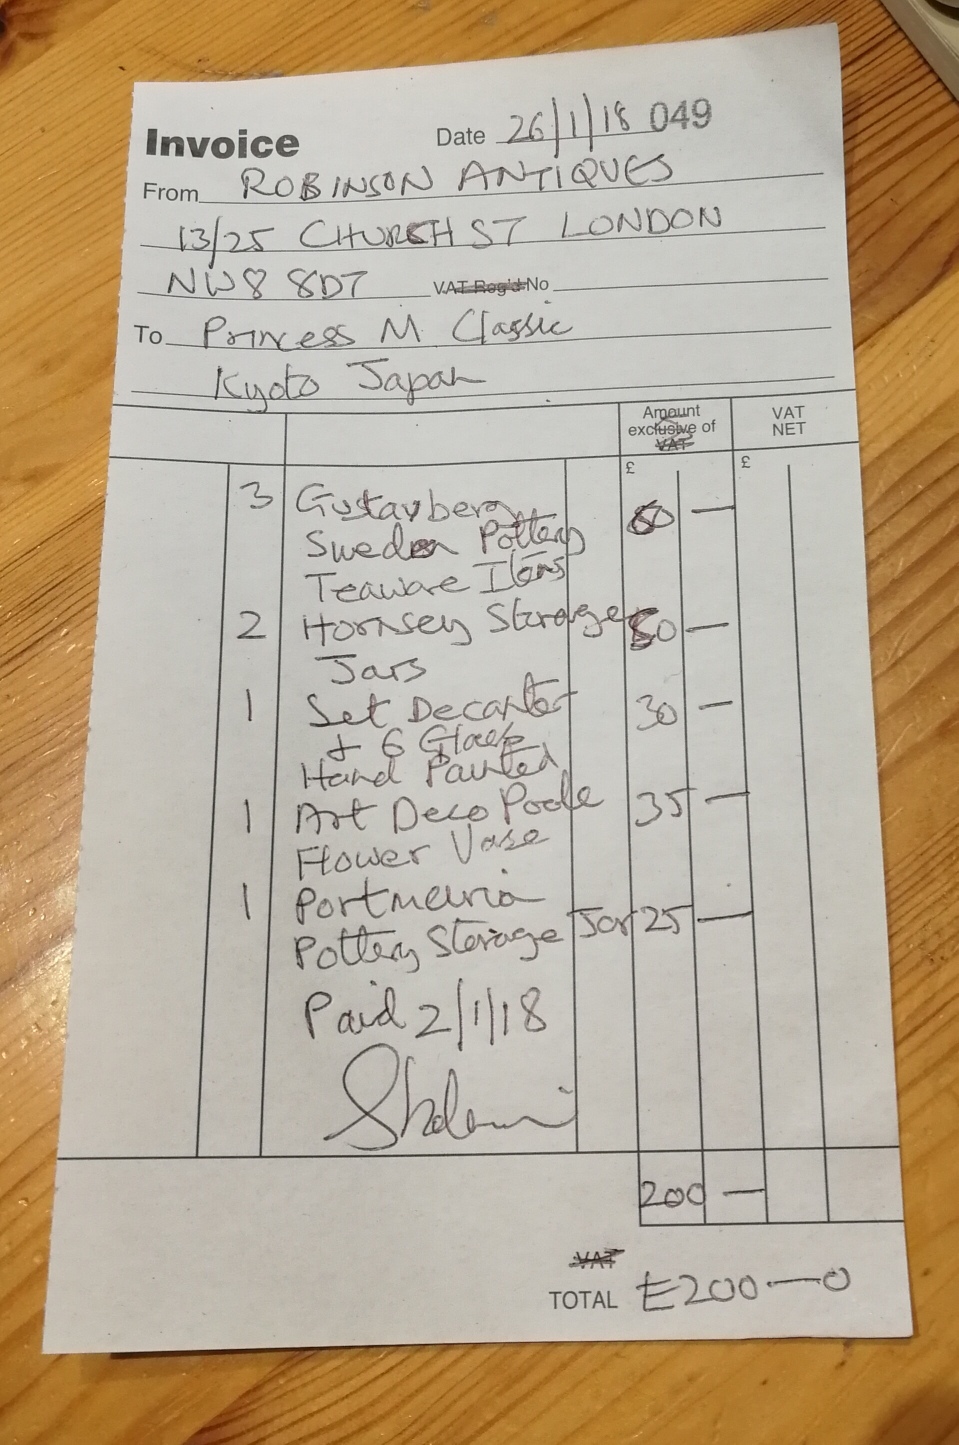 Invoice Date 26/1/18 049
From ROBINSON ANTIQUES
13/25 CHURCH ST LONDON
NW8 8DT VAT Reg'd No
To Princess M. Classic
Kyoto Japan
Amount exclusive of VAT
VAT NET
£ £
3 Gustavberg 60 —
Sweden Pottery
Teaware Items
2 Hornsey Storage 50 —
Jars
1 Set Decanter 30 —
+ 6 Glass
Hand Painted
1 Art Deco Poole 35 —
Flower Vase
1 Portmeiria
Pottery Storage Jar 25 —
Paid 2/1/18
200 —
VAT
TOTAL £200—0